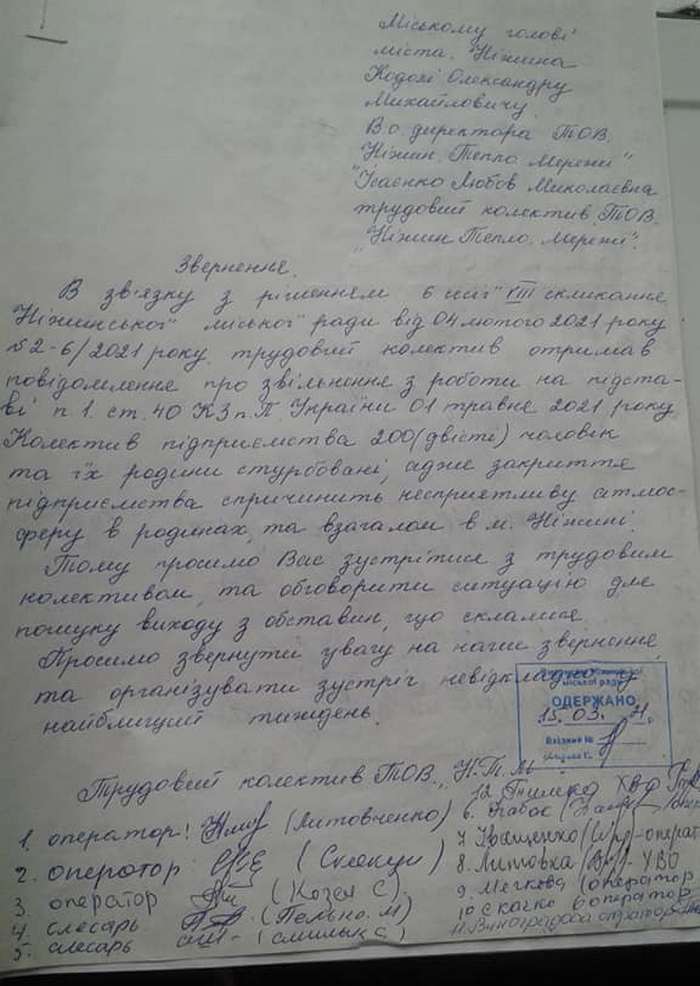 Міському голові
міста Ніжина
Кодолі Олександру
Михайловичу
В.о. директора ТОВ.
"Ніжин. Тепло. Мережі"
Ісаєнко Любов Миколаєвна
трудовий колектив ТОВ.
"Ніжин Тепло. Мережі".
Звернення.
В зв'язку з рішенням 6 сесії VIII скликання
Ніжинської міської ради від 04 лютого 2021 року
№ 2-6/2021 року трудовий колектив отримав
повідомлення про звільнення з роботи на підста-
ві п 1. ст. 40 КЗпП. України 01 травня 2021 року
Колектив підприємства 200 (двісті) чоловік
та їх родини стурбовані, адже закриття
підприємства спричинить несприятливу атмос-
феру в родинах, та взагалом в м. Ніжині.
Тому просимо Вас зустрітися з трудовим
колективом, та обговорити ситуацію для
пошуку виходу з обставин, що склалися.
Просимо звернути увагу на наше звернення
та організувати зустріч невідкладно у
найближчий тиждень.
міської ради
ОДЕРЖАНО
15. 03. 21.
Вхідний №
Трудовий колектив ТОВ. "Н.Т.М"
1. оператор: (Литовченко)
2. оператор
3. оператор (Козел С).
4. слесарь
5. слесарь
12. ХВО
6.
7. Іващенко оператор
8. Литовка ХВО
9. Мягкова (оператор
10 Скачко оператор
11. Виноградова оператор